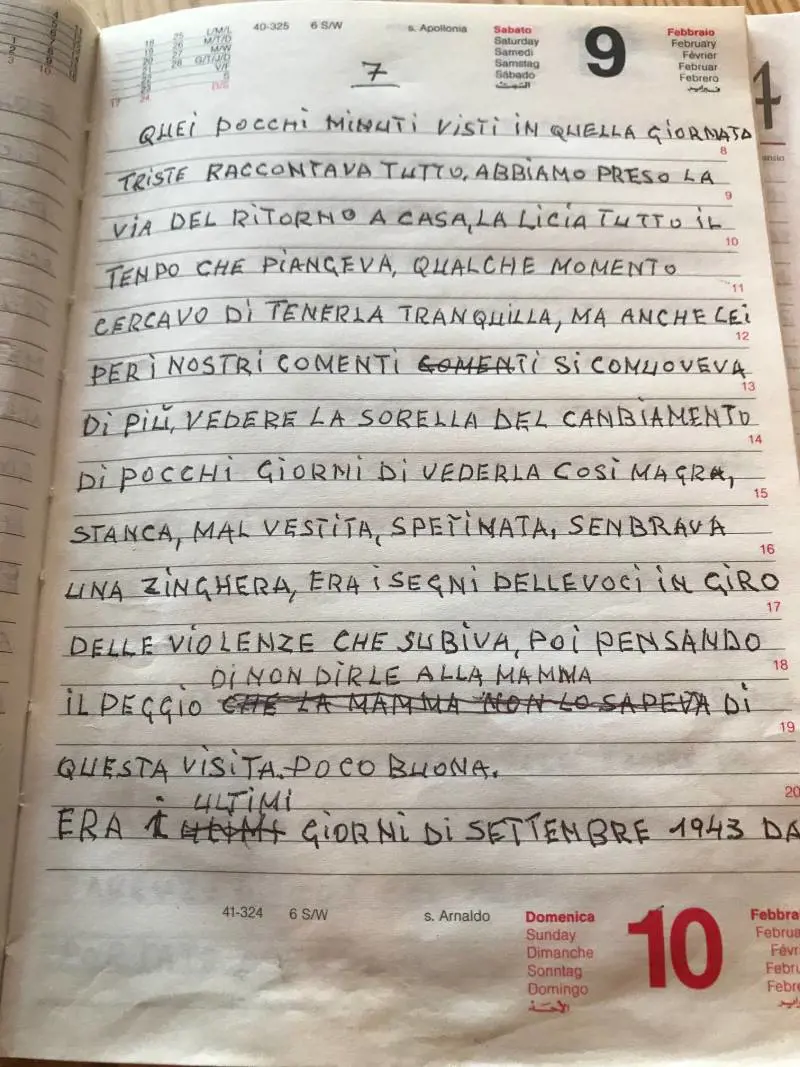 40-325 6 S/W s. Apollonia
Sabato
Saturday
Samedi
Samstag
Sábado
السبت
9
Febbraio
February
Février
Februar
Febrero
فبراير
7
QUEI POCCHI MINUTI VISTI IN QUELLA GIORNATA
8
TRISTE RACCONTAVA TUTTO, ABBIAMO PRESO LA
9
VIA DEL RITORNO A CASA, LA LICIA TUTTO IL
10
TENPO CHE PIANGEVA, QUALCHE MOMENTO
11
CERCAVO DI TENERLA TRANQUILLA, MA ANCHE LEI
12
PER I NOSTRI COMENTI COMENTI SI COMUOVEVA
13
DI PIÙ, VEDERE LA SORELLA DEL CANBIAMENTO
14
DI POCCHI GIORNI DI VEDERLA COSÌ MAGRA,
15
STANCA, MAL VESTITA, SPETINATA, SENBRAVA
16
UNA ZINGHERA, ERA I SEGNI DELLE VOCI IN GIRO
17
DELLE VIOLENZE CHE SUBIVA, POI PENSANDO
18
DI NON DIRLE ALLA MAMMA
IL PEGGIO CHE LA MAMMA NON LO SAPEVA DI
19
QUESTA VISITA. POCO BUONA.
20
ULTIMI
ERA I GIORNI DI SETTEMBRE 1943 DA
41-324 6 S/W s. Arnaldo
Domenica
Sunday
Dimanche
Sonntag
Domingo
الأحد
10
Febbra
Februa
Févr
Febru
Febre